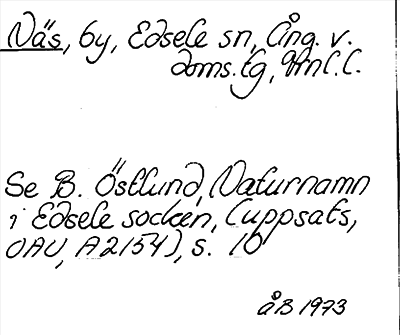 Näs, by, Edsele sn, Ång. v.
doms.tg, Vnl.l.
Se B. Östlund, Naturnamn
i Edsele socken, (uppsats,
OAU, A2154), s. 10
åB 1973